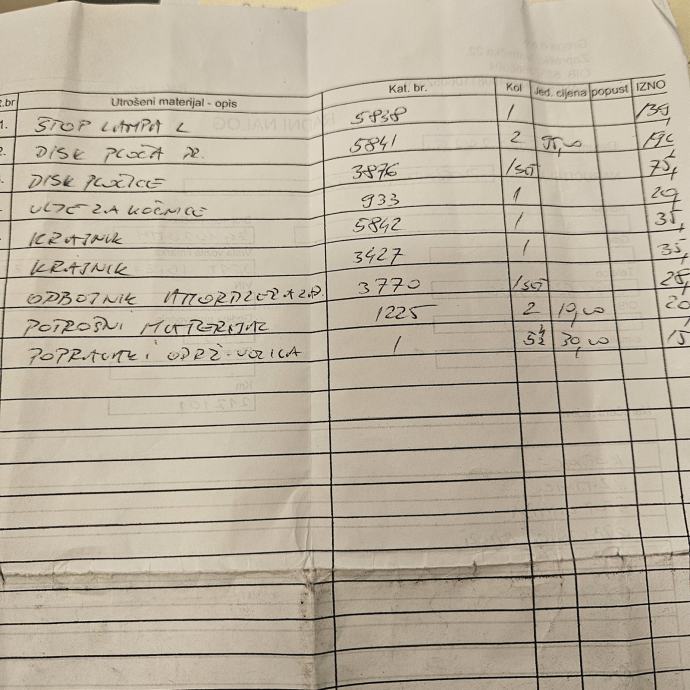 .br Utrošeni materijal - opis Kat. br. Kol Jed. cijena popust IZNO
1. STOP LAMPA L 5838 1
DISK PLOČA 5841 2
DISK PLOČICE 3876 1/SET 75,
ULJE ZA KOČNICE 933 1 20,
KRAJNIK 5842 1 35,
KRAJNIK 3427 1 35,
ODBOJNIK 3770 1/SET
POTROŠNI MATERIJAL 1225 2 10,00 20
POPRAVAK I ODRŽ. VOZILA 1 30,00